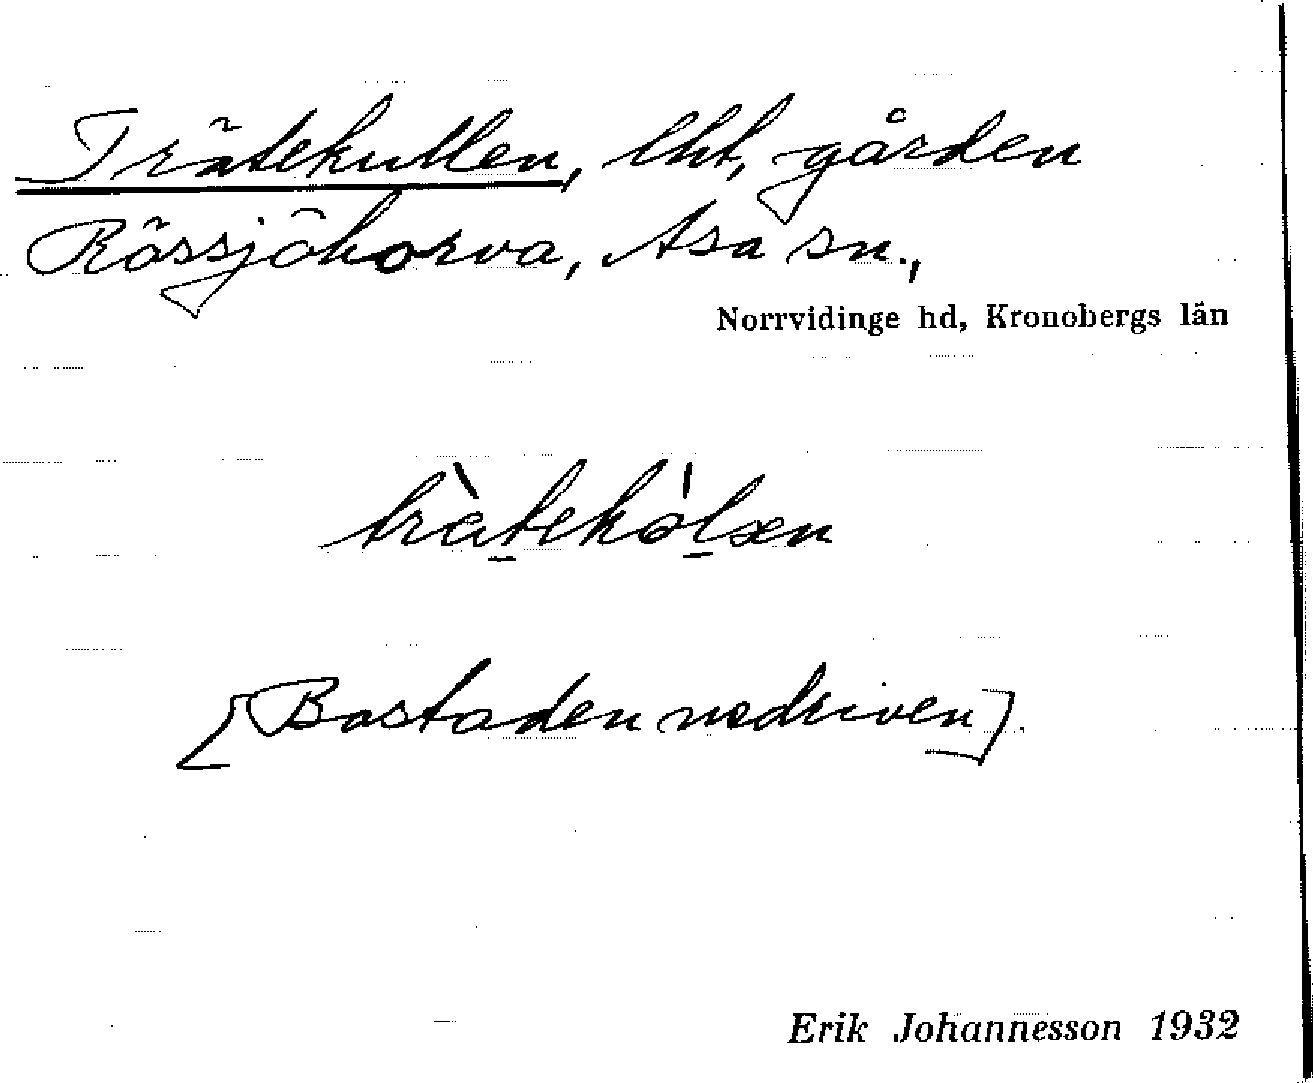 Trätekullen, lht, gården
Rössjöhorva, Asa sn.,
Norrvidinge hd, Kronobergs län
[Bostaden nedriven].
Erik Johannesson 1932